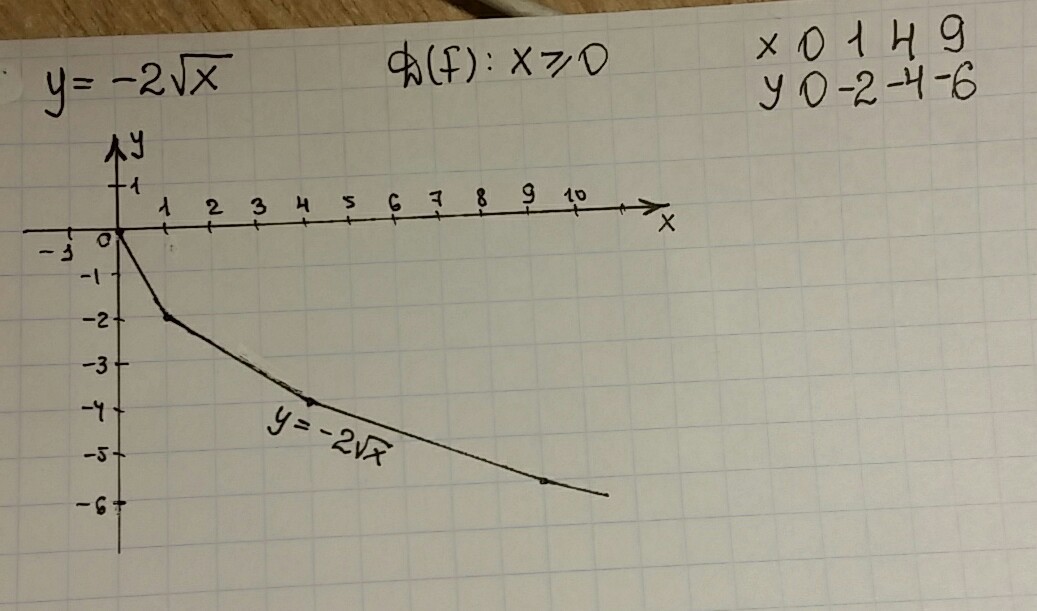 y = -2√x
D(f): x ⩾ 0
x 0 1 4 9
y 0 -2 -4 -6
y
1
1 2 3 4 5 6 7 8 9 10
x
-1 0
-1
-2
-3
-4
y = -2√x
-5
-6